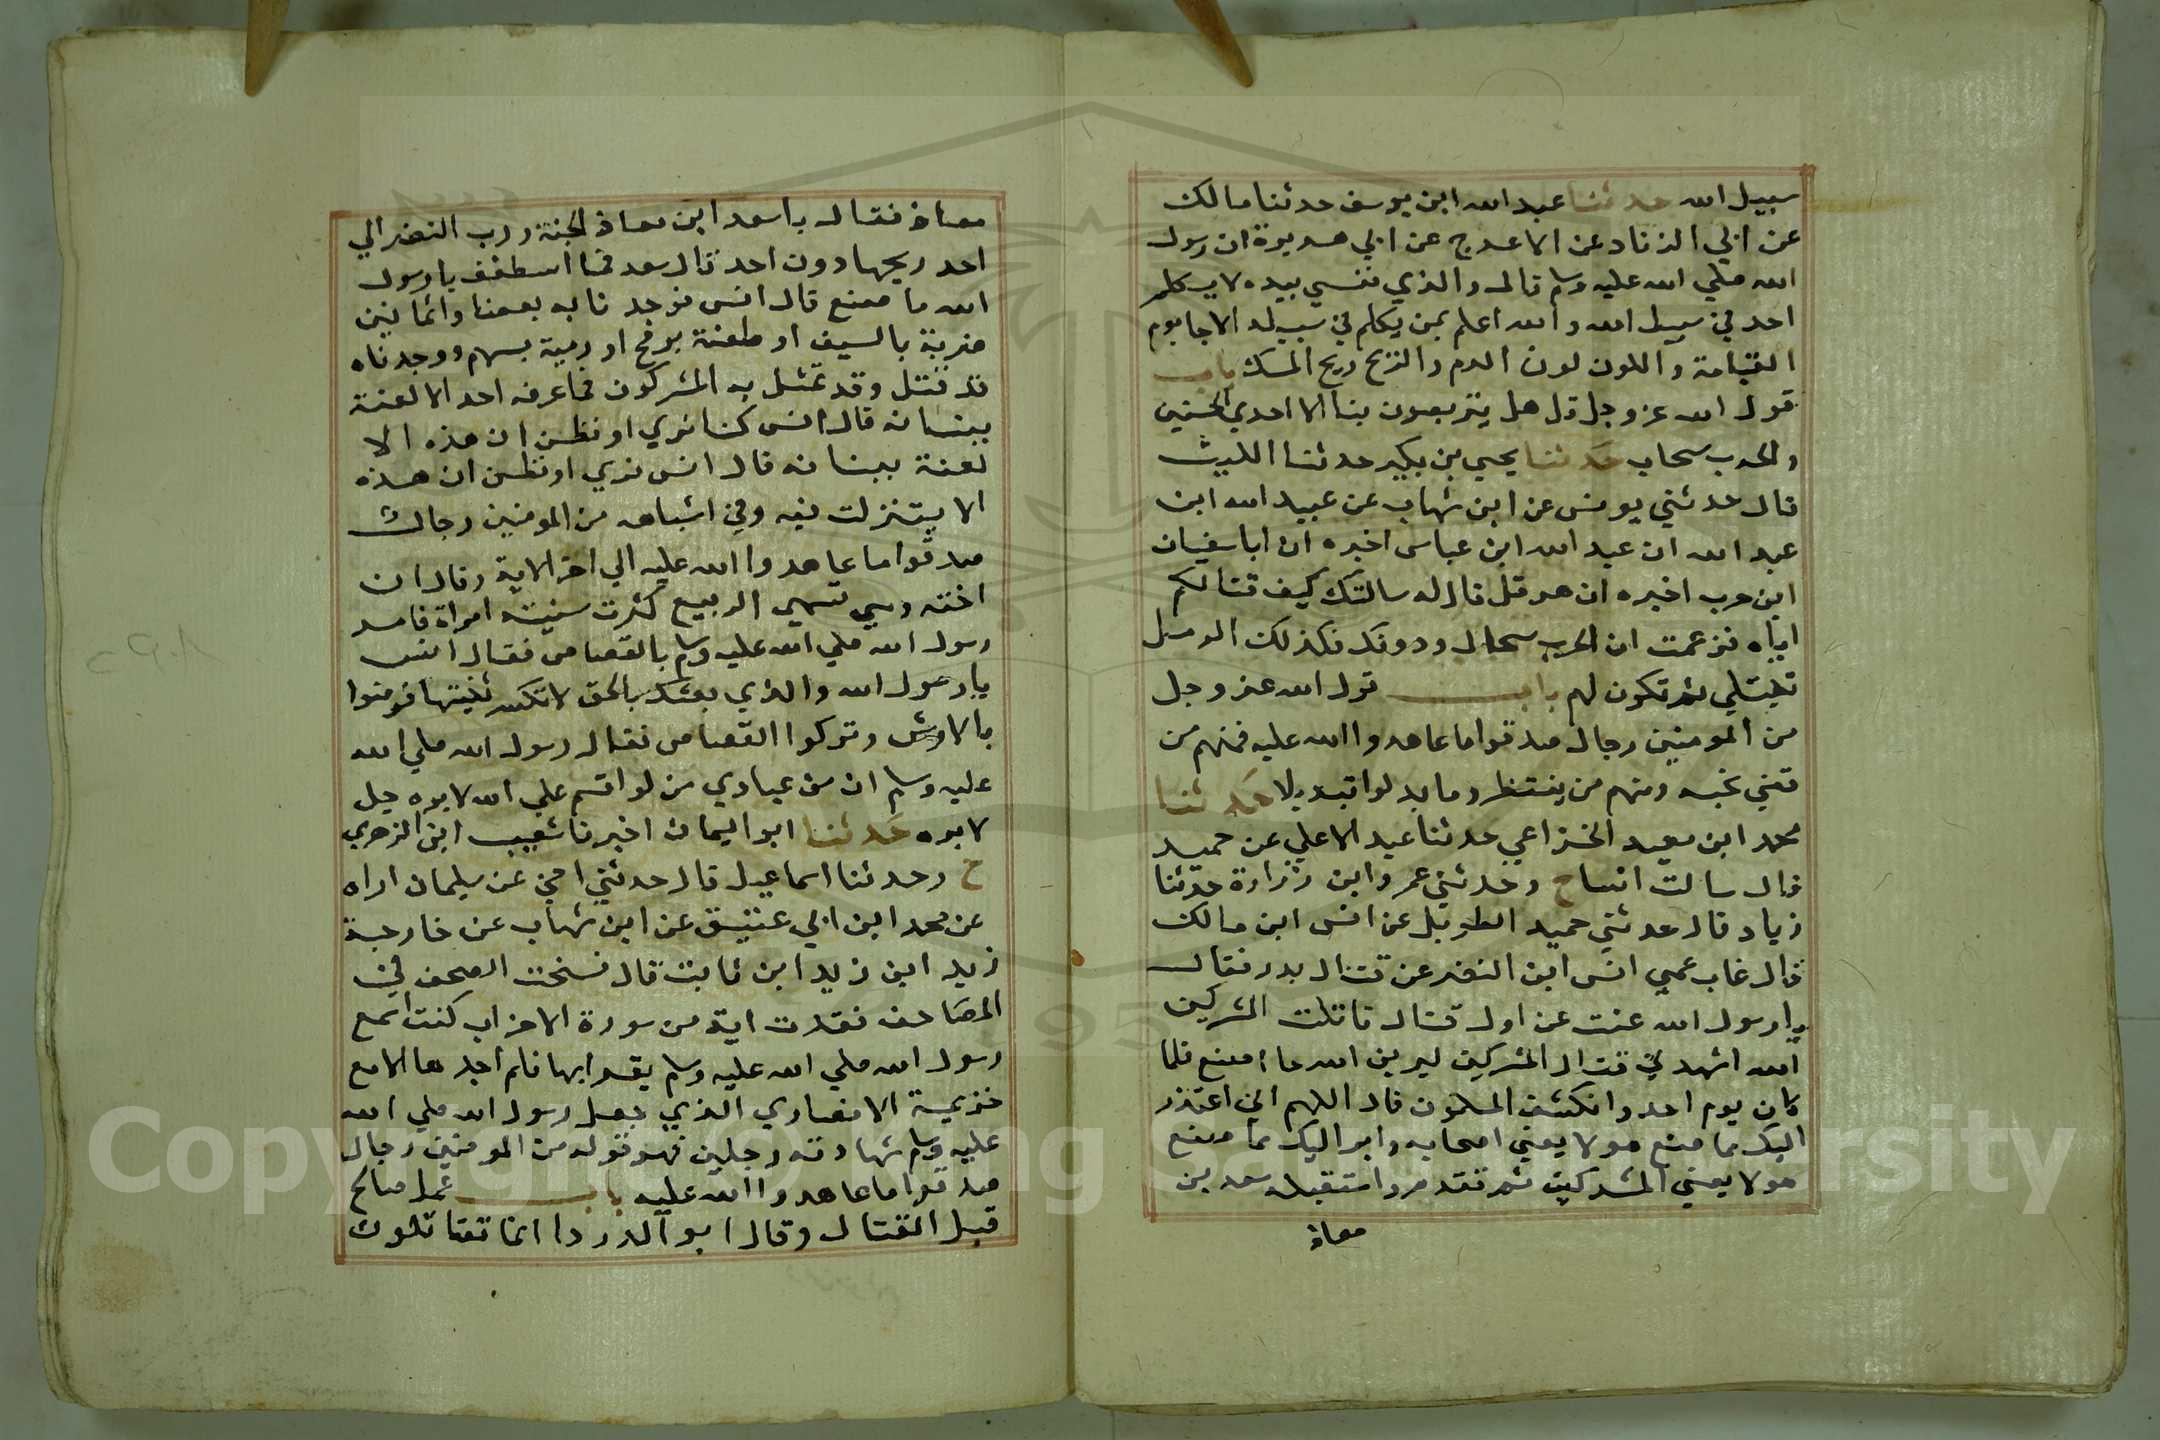 سبيل الله حدثنا عبد الله ابن يوسف حدثنا مالك
عن ابي الزناد عن الاعرج عن ابي هريرة ان رسول
الله صلي الله عليه وسلم قال والذي نفسي بيده لا يكلم
احد في سبيل الله والله اعلم بمن يكلم في سبيله الا جا يوم
القيامة واللون لون الدم والريح ريح المسك باب
قول الله عز وجل قل هل يتربصون بنا الا احدي الحسنيين
والحرب سجاب حدثنا يحيي بن بكير حدثنا الليث
قال حدثني يونس عن ابن شهاب عن عبيد الله ابن
عبد الله ان عبد الله ابن عباس اخبره ان ابا سفيان
ابن حرب اخبره ان هرقل قال له سالتك كيف قتالكم
اياه فزعمت ان الحرب سجال ودونك فكذلك الرسل
تبتلي ثم تكون لهم باب قول الله عز وجل
من المومنين رجال صدقوا ما عاهدوا الله عليه فمنهم من
قضي نحبه ومنهم من ينتظر وما بدلوا تبديلا حدثنا
محمد ابن سعيد الخزاعي حدثنا عبد الاعلي عن حميد
قال سالت انسا ح وحدثني عمرو ابن زرارة حدثنا
زياد قال حدثني حميد الطويل عن انس ابن مالك
قال غاب عمي انس ابن النضر عن قتال بدر فقال
يا رسول الله غبت عن اول قتال قاتلت المشركين
الله اشهدني قتال المشركين ليرين الله ما اصنع فلما
كان يوم احد وانكشف المسلمون قال اللهم اني اعتذر
اليك مما صنع هولا يعني اصحابه وابرا اليك مما صنع
هولا يعني المشركين ثم تقدم واستقبله سعد بن
معاذ
معاذ فقال يا سعد ابن معاذ الجنة ورب النضر الي
احد ريحها دون احد قال سعد فما اسطعت يا رسول
الله ما صنع قال انس فوجدنا به بضعا وثمانين
ضربة بالسيف او طعنة برمح او رمية بسهم ووجدناه
قد قتل وقد تمثل به المشركون فما عرفه احد الا لعنة
ببنانه قال انس كنا نري او نظن ان هذه الا
لعنة ببنانه قال انس نري او نظن ان هذه
الا ية نزلت فيه وفي اشباهه من المومنين رجال
صدقوا ما عاهدوا الله عليه الي اخر الاية وقال ان
اخته وهي تسمي الربيع كسرت سنية امراة فامر
رسول الله صلي الله عليه وسلم بالقصاص فقال انس
يا رسول الله والذي بعثك بالحق لا تكسر ثنيتها فرضوا
بالارش وتركوا القصاص فقال رسول الله صلي الله
عليه وسلم ان من عبادي من لو اقسم علي الله لابره جل
لابره حدثنا ابو اليمان اخبرنا شعيب ابن الزهري
ح وحدثنا اسماعيل قال حدثني اخي عن سليمان اراه
عن محمد ابن ابي عتيق عن ابن شهاب عن خارجة
زيد ابن زيد ابن ثابت قال نسخت الصحف في
المصاحف فقدت اية من سورة الاحزاب كنت اسمع
رسول الله صلي الله عليه وسلم يقرا بها فلم اجدها الا مع
خزيمة الانصاري الذي جعل رسول الله صلي الله
عليه وسلم شهادته رجلين فهو قوله من المومنين رجال
صدقوا ما عاهدوا الله عليه باب عمل صالح
قبل القتال وقال ابو الدردا انما تقاتلون